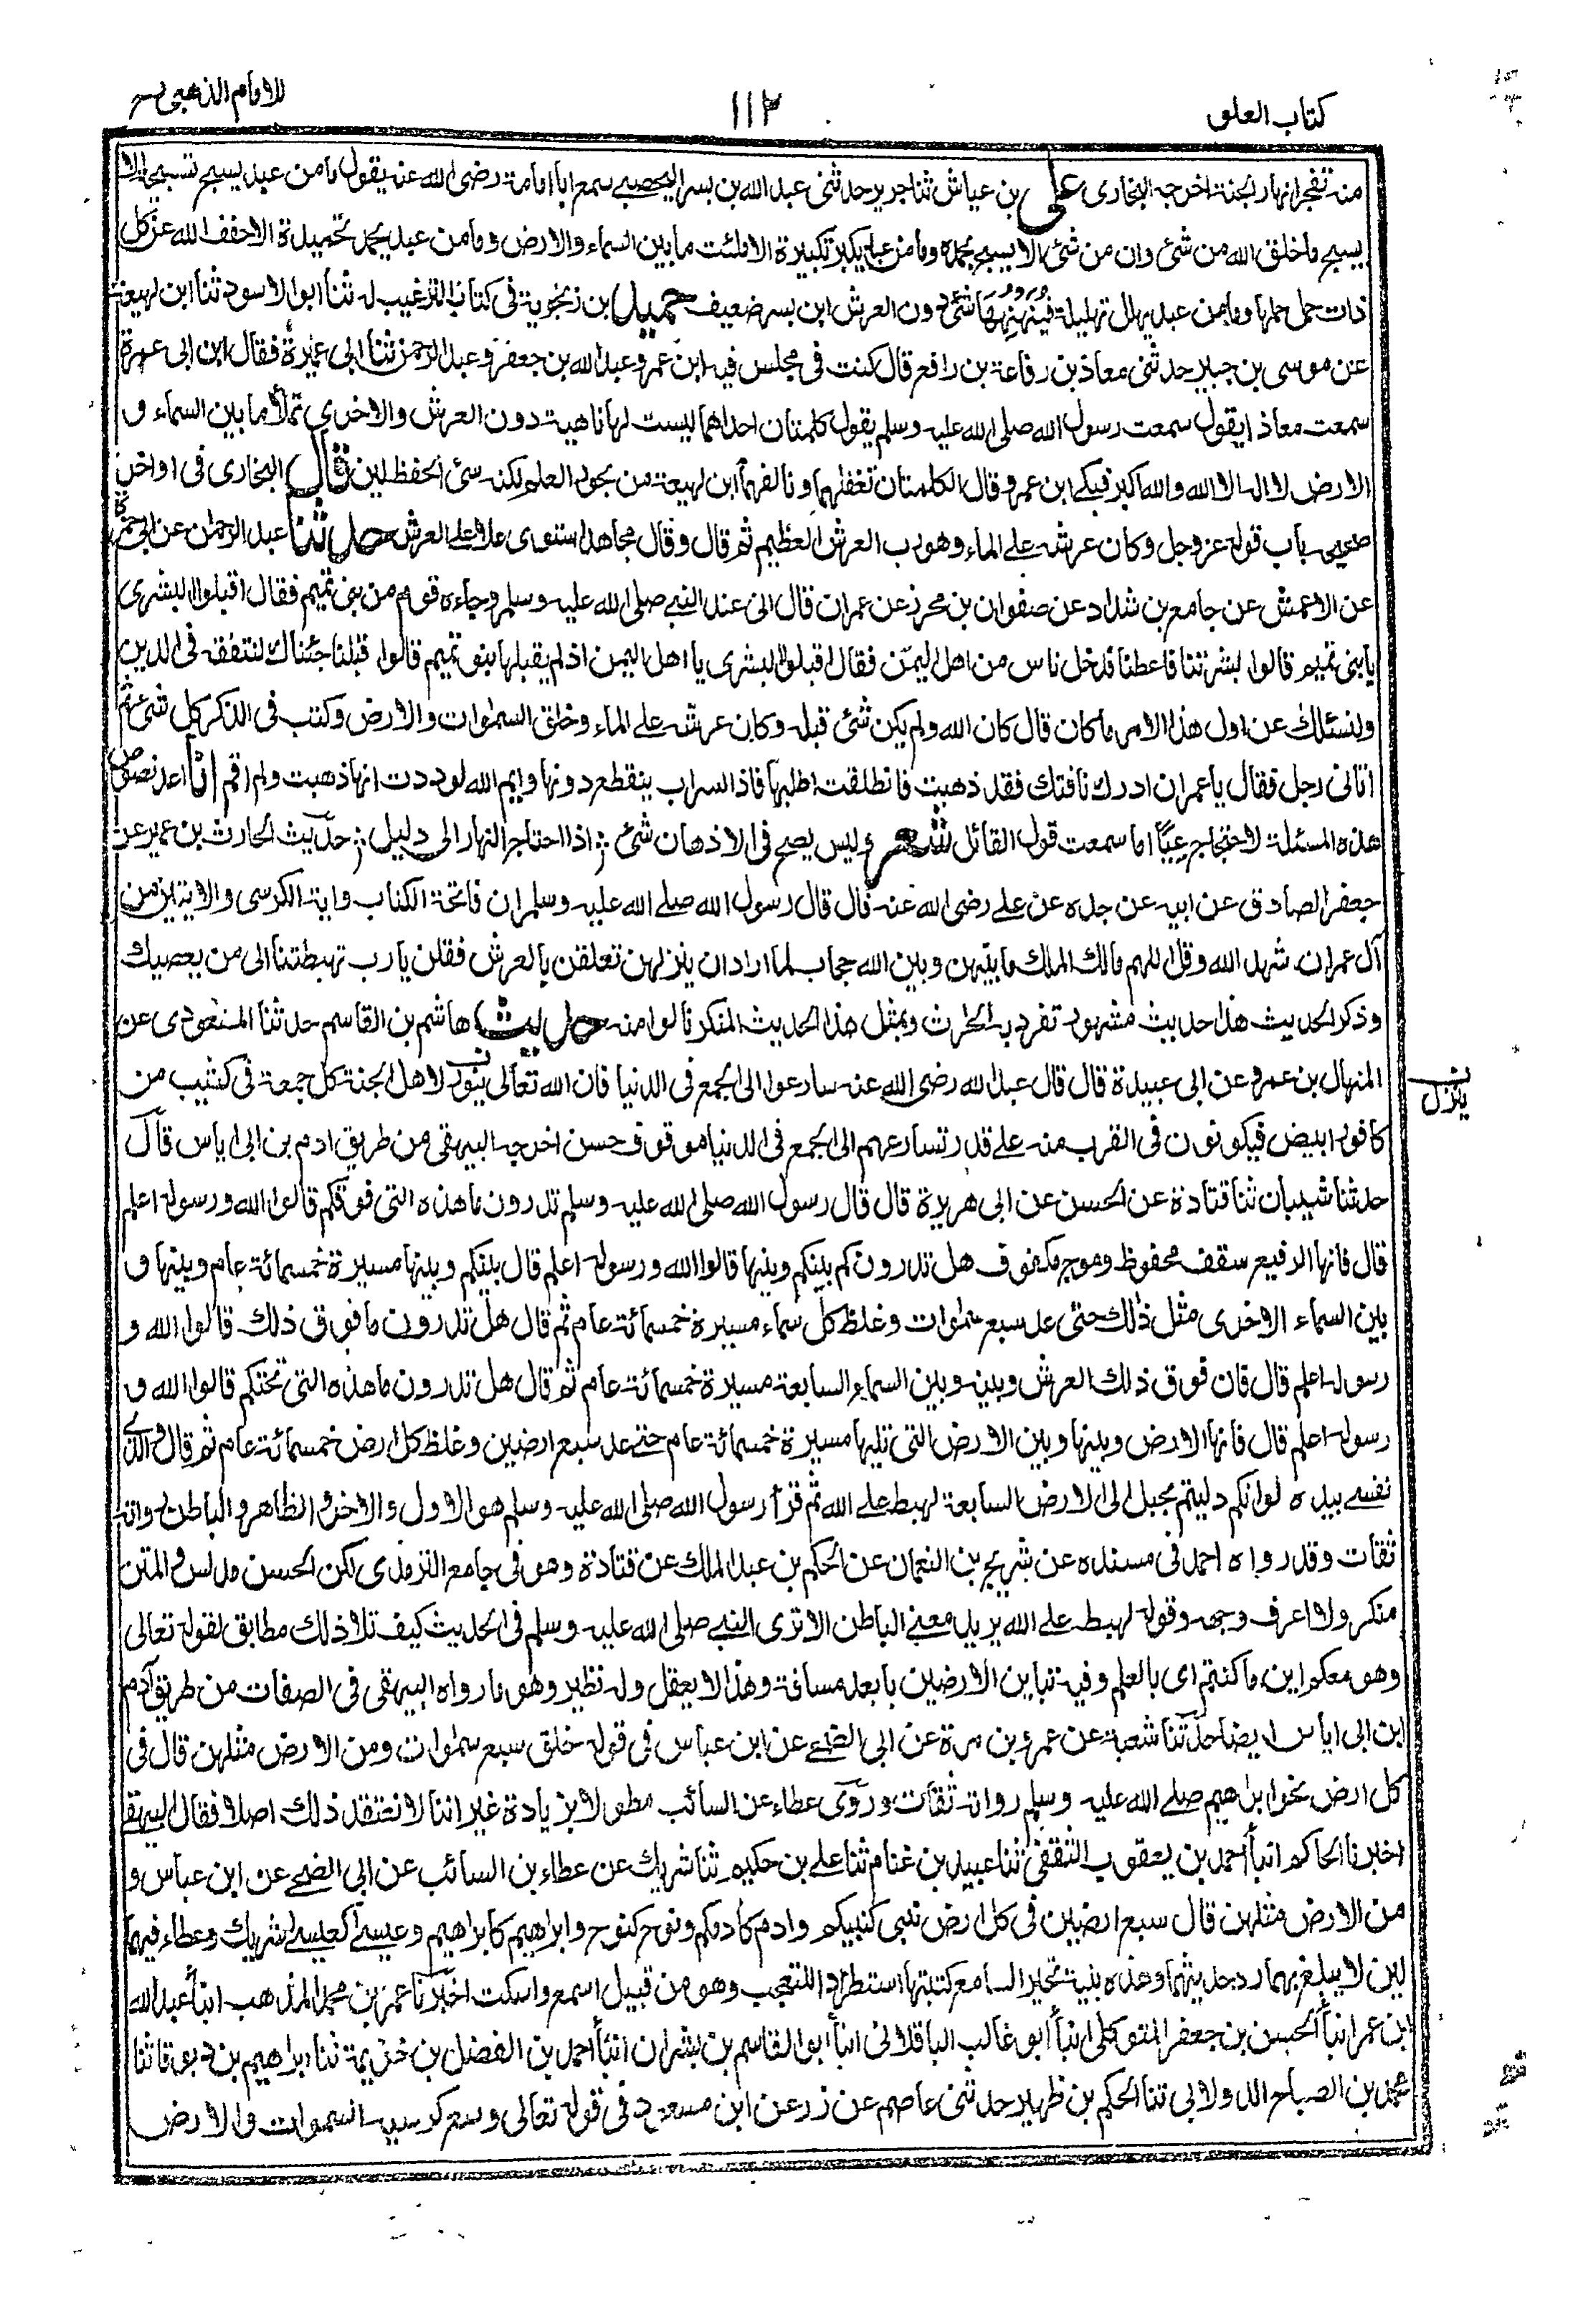 كتاب العلو
١١٢
للامام الذهبى رح
منه تفجر انهار الجنة اخرجه البخارى على بن عياش ثنا جرير حدثنى عبد الله بن بسر اليحصبى سمع ابا امامة رضى الله عنه يقول ما من عبد يسبح تسبيحة الا
يسبح ما خلق الله من شئ وان من شئ الا يسبح بحمده وما من عبد يكبر تكبيرة الا ملئت ما بين السماء والارض وما من عبد يحمد تحميدة الا خفف الله عن كل
ذات حمل حملها وما من عبد يهلل تهليلة فينهنهها شئ دون العرش ابن بسر ضعيف حميد بن زنجوية فى كتاب الترغيب له ثنا ابو الاسود ثنا ابن لهيعة
عن موسى بن جبير حدثنى معاذ بن رفاعة بن رافع قال كنت فى مجلس فيه ابن عمر وعبد الله بن جعفر وعبد الرحمن ثنا ابى عميرة فقال ابن ابى عمرة
سمعت معاذا يقول سمعت رسول الله صلى الله عليه وسلم يقول كلمتان احداهما ليست لها ناهية دون العرش والاخرى تملأ ما بين السماء و
الارض لا اله الا الله والله اكبر فبكى ابن عمر وقال الكلمتان تغفلهما ونالفهما ابن لهيعة من بحور العلم لكنه سئ الحفظ لين قال البخارى فى اواخر
صحيحه باب قوله عز وجل وكان عرشه على الماء وهو رب العرش العظيم ثم قال وقال مجاهد استوى علا على العرش حدثنا عبد الرحمان عن ابى حمزة
عن الاعمش عن جامع بن شداد عن صفوان بن محرز عن عمران قال انى عند النبى صلى الله عليه وسلم وجاءه قوم من بنى تميم فقال اقبلوا البشرى
يا بنى تميم قالوا بشرتنا فاعطنا فدخل ناس من اهل اليمن فقال اقبلوا البشرى يا اهل اليمن اذ لم يقبلها بنو تميم قالوا قبلنا جئناك لنتفقه فى الدين
ولنسئلك عن اول هذا الامر ما كان قال كان الله ولم يكن شئ قبله وكان عرشه على الماء وخلق السموات والارض وكتب فى الذكر كل شئ ثم
اتانى رجل فقال يا عمران ادرك ناقتك فقد ذهبت فانطلقت اطلبها فاذا السراب ينقطع دونها وايم الله لوددت انها ذهبت ولم اقم انا اعد نصوص
هذه المسئلة لاحتجاج عييا اما سمعت قول القائل شعر وليس يصح فى الاذهان شئ ؛ اذا احتاج النهار الى دليل ؛ حديث الحارث بن عمير عن
جعفر الصادق عن ابيه عن جده عن على رضى الله عنه قال قال رسول الله صلى الله عليه وسلم ان فاتحة الكتاب واية الكرسى والايتين من
آل عمران شهد الله وقل اللهم مالك الملك ما بينهن وبين الله حجاب لما اراد ان ينزلهن تعلقن بالعرش فقلن يا رب تهبطنا الى من يعصيك
وذكر الحديث هذا حديث مشهور تفرد به الحارث وبمثل هذا الحديث المنكر نالوا منه حديث هاشم بن القاسم حدثنا المسعودى عن
المنهال بن عمرو عن ابى عبيدة قال قال عبد الله رضى الله عنه سارعوا الى الجمع فى الدنيا فان الله تعالى ينزل لاهل الجنة كل جمعة فى كثيب من
ينزل
كافور ابيض فيكونون فى القرب منه على قدر تسارعهم الى الجمع فى الدنيا موقوف حسن اخرجه البيهقى من طريق ادم بن ابى اياس قال
حدثنا شيبان ثنا قتادة عن الحسن عن ابى هريرة قال قال رسول الله صلى الله عليه وسلم تدرون ما هذه التى فوقكم قالوا الله ورسوله اعلم
قال فانها الرفيع سقف محفوظ وموج مكفوف هل تدرون كم بينكم وبينها قالوا الله ورسوله اعلم قال بينكم وبينها مسيرة خمسمائة عام وبينها و
بين السماء الاخرى مثل ذلك حتى عد سبع سموات وغلظ كل سماء مسيرة خمسمائة عام ثم قال هل تدرون ما فوق ذلك قالوا الله و
رسوله اعلم قال فان فوق ذلك العرش وبينه وبين السماء السابعة مسيرة خمسمائة عام ثم قال هل تدرون ما هذه التى تحتكم قالوا الله و
رسوله اعلم قال فانها الارض وبينها وبين الارض التى تليها مسيرة خمسمائة عام حتى عد سبع ارضين وغلظ كل ارض خمسمائة عام ثم قال والذى
نفسى بيده لو انكم دليتم بحبل الى الارض السابعة لهبط على الله ثم قرأ رسول الله صلى الله عليه وسلم هو الاول والاخر والظاهر والباطن رواته
ثقات وقد رواه احمد فى مسنده عن شريح بن النعمان عن الحكم بن عبد الملك عن قتادة وهو فى جامع الترمذى لكن الحسن مدلس والمتن
منكر ولا اعرف وجهه وقوله لهبط على الله يريد معنى الباطن الا ترى النبى صلى الله عليه وسلم فى الحديث كيف تلا ذلك مطابق لقوله تعالى
وهو معكم اين ما كنتم اى بالعلم وفيه تباين الارضين بابعد مسافة وهذا لا يعقل وله نظير وهو ما رواه البيهقى فى الصفات من طريق آدم
ابن ابى اياس ايضا حدثنا شعبة عن عمرو بن مرة عن ابى الضحى عن ابن عباس فى قوله خلق سبع سموات ومن الارض مثلهن قال فى
كل ارض نحو ابراهيم صلى الله عليه وسلم رواته ثقات وروى عطاء عن السائب مطولا بزيادة غير اننا لا نعتقد ذلك اصلا فقال البيهقى
اخبرنا الحاكم انبأ احمد بن يعقوب الثقفى ثنا عبيد بن غنام ثنا على بن حكيم ثنا شريك عن عطاء بن السائب عن ابى الضحى عن ابن عباس و
من الارض مثلهن قال سبع ارضين فى كل ارض نبى كنبيكم وادم كادمكم ونوح كنوح وابراهيم كابراهيم وعيسى كعيسى شريك وعطاء فيهما
لين لا يبلغ بهما رد حديثهما وهذه بلية تحير السامع كتبتها استطرادا للتعجب وهو من قبيل اسمع واسكت اخبرنا عمر بن محمد المذهب انبأ عبد الله
ابن عمر انبأ الحسن بن جعفر المتوكلى انبأ ابو غالب الباقلانى انبأ ابو القاسم بن بشران انبأ احمد بن الفضل بن خزيمة ثنا ابراهيم بن دبوقا ثنا
محمد بن الصباح الدولابى ثنا الحكم بن ظهير حدثنى عاصم عن زر عن ابن مسعود فى قوله تعالى وسع كرسيه السموات والارض